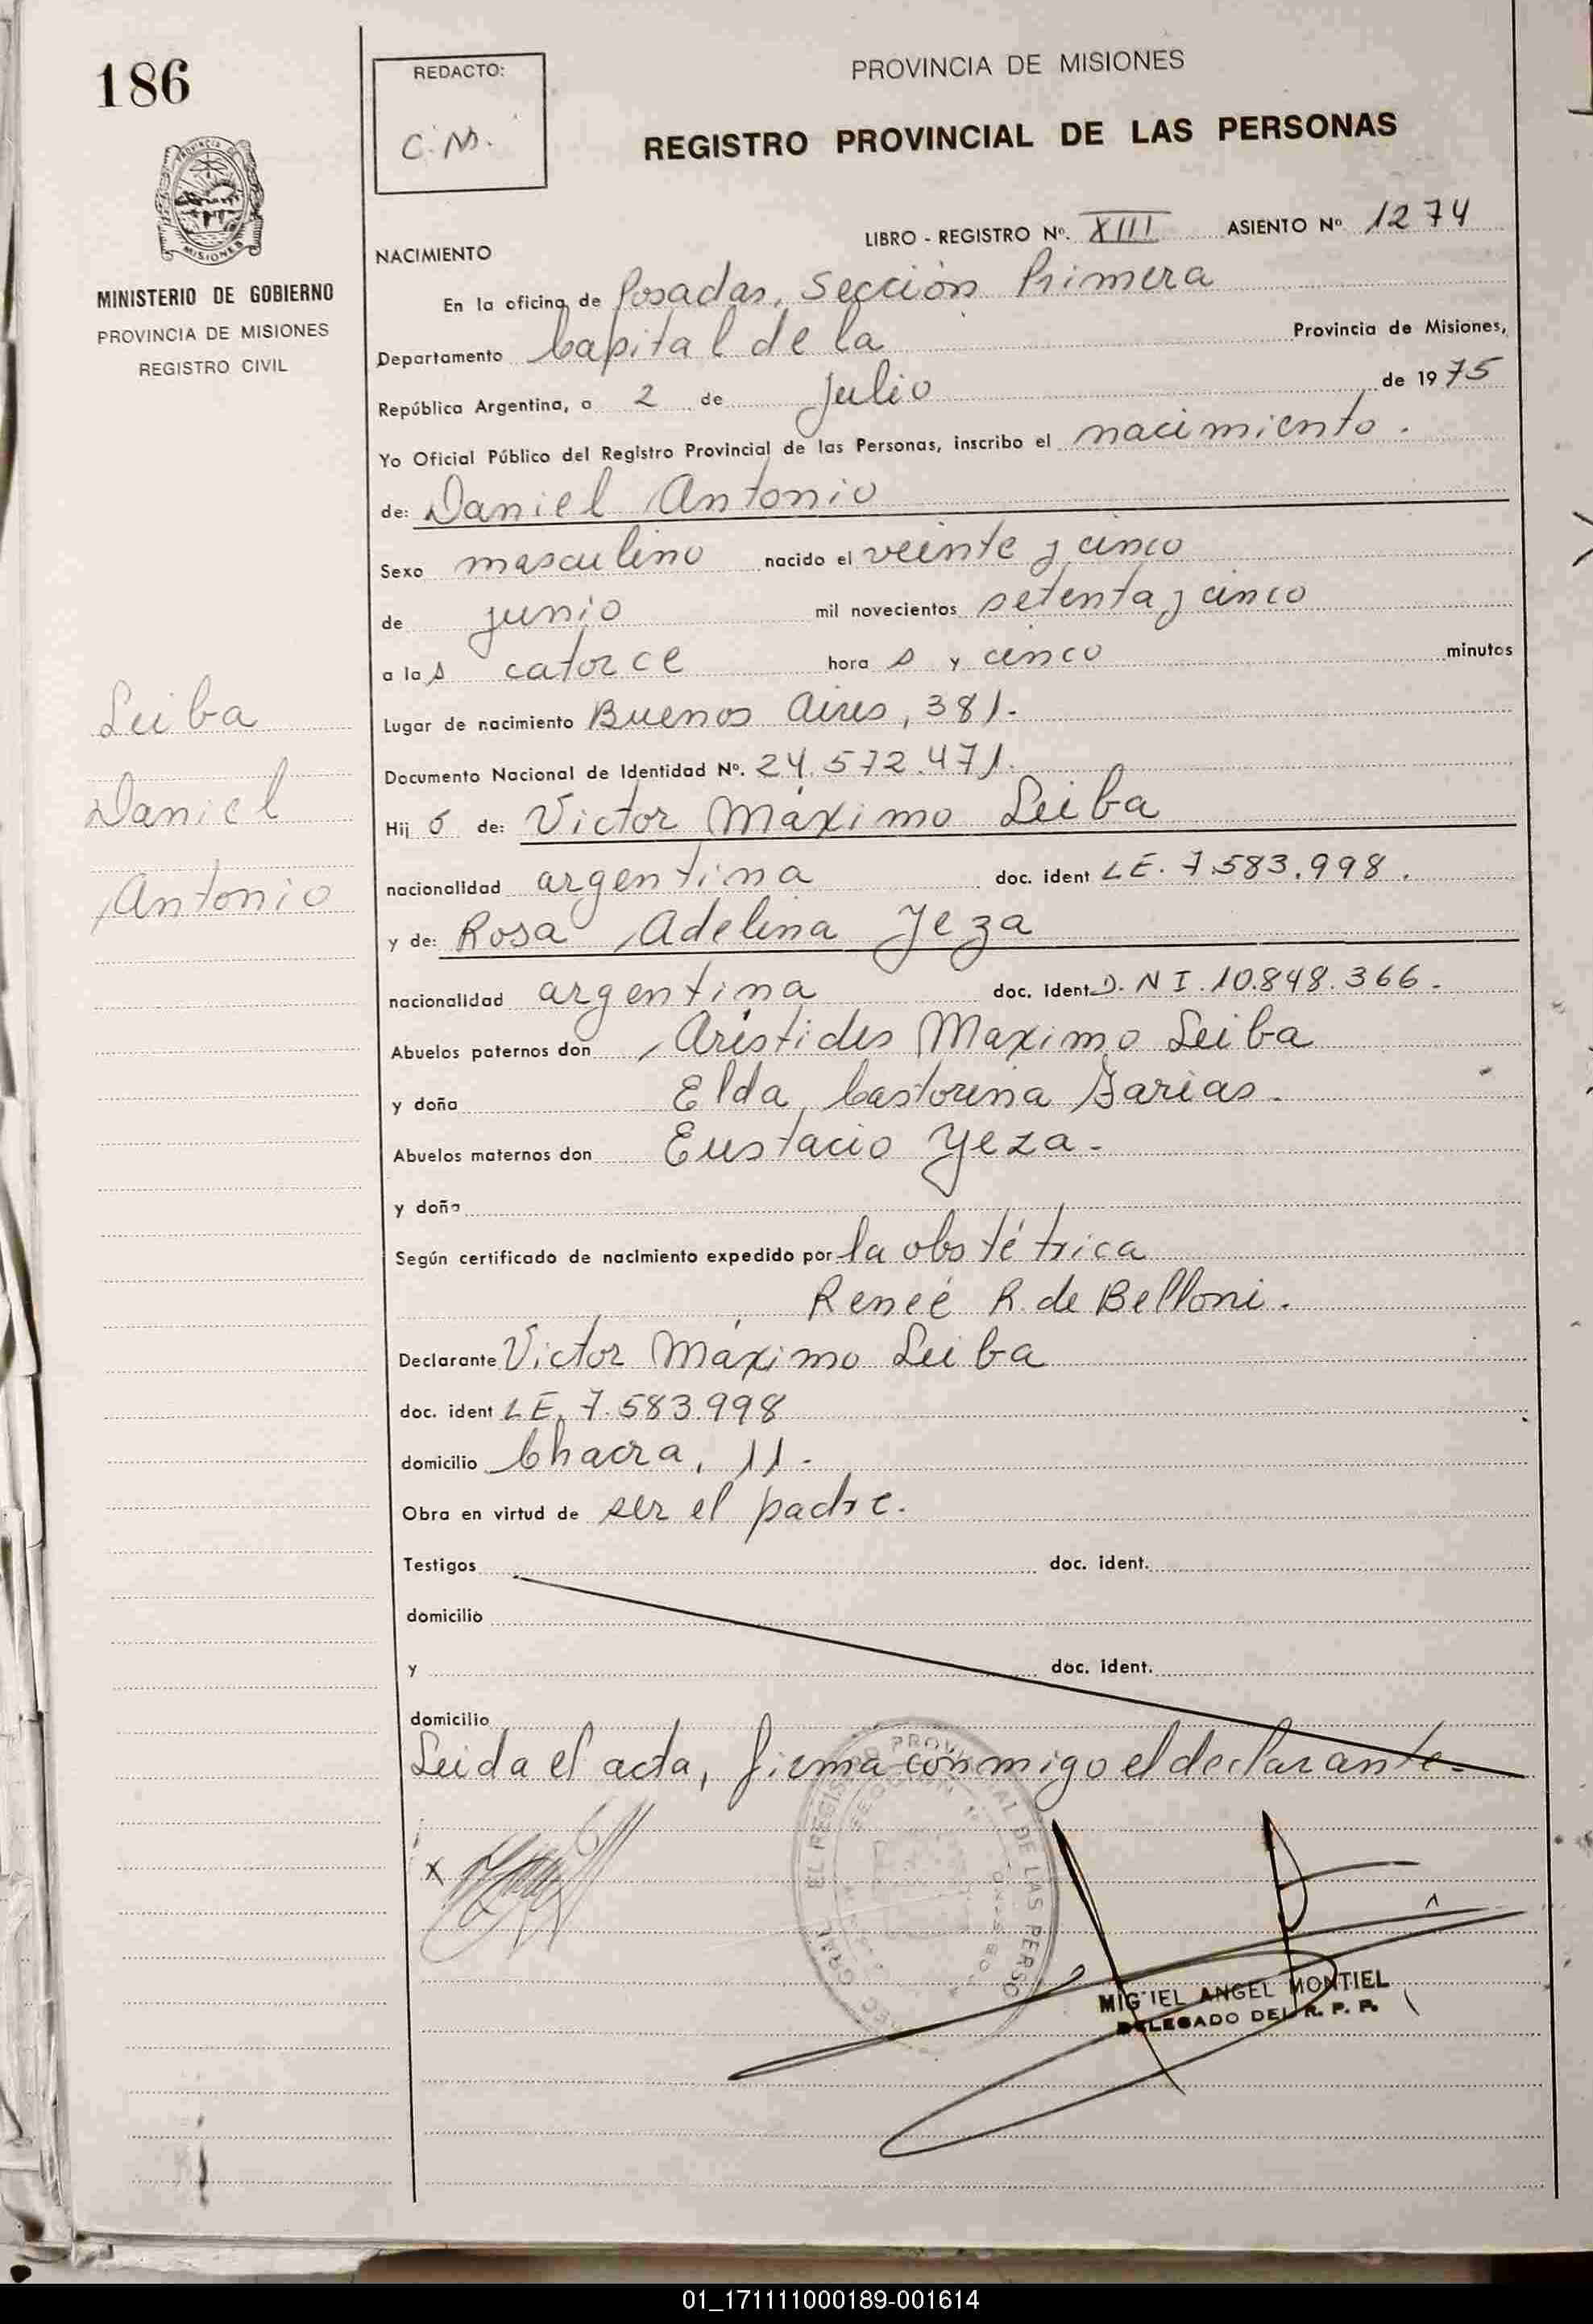 186
REDACTO:
C. M.
PROVINCIA DE MISIONES
REGISTRO PROVINCIAL DE LAS PERSONAS
PROVINCIA
MISIONES
MINISTERIO DE GOBIERNO
PROVINCIA DE MISIONES
REGISTRO CIVIL
LIBRO - REGISTRO Nº. XIII ASIENTO Nº 1274
NACIMIENTO
En la oficina de Posadas, Sección Primera
Departamento Capital de la Provincia de Misiones,
República Argentina, a 2 de Julio de 1975
Yo Oficial Público del Registro Provincial de las Personas, inscribo el nacimiento.
de: Daniel Antonio
Sexo masculino nacido el veinte y cinco
de junio mil novecientos setenta y cinco
a las catorce hora s y cinco minutos
Leiba
Daniel
Antonio
Lugar de nacimiento Buenos Aires, 381.
Documento Nacional de Identidad Nº. 24.572.471.
Hij o de: Victor Máximo Leiba
nacionalidad argentina doc. ident LE. 7.583.998.
y de: Rosa Adelina Yeza
nacionalidad argentina doc. ident D.N I. 10.848.366.
Abuelos paternos don Arístides Maximo Leiba
y doña Elda Castorina Farias.
Abuelos maternos don Eustacio Yeza-
y doña
Según certificado de nacimiento expedido por la obstétrica
Reneé R. de Belloni.
Declarante Victor Máximo Leiba
doc. ident LE. 7.583.998
domicilio Chacra, 11.
Obra en virtud de ser el padre.
Testigos doc. ident.
domicilio
y doc. ident.
domicilio
Leida el acta, firma conmigo el declarante.
EL REGISTRO PROVINCIAL DE LAS PERSO
x
MIGUEL ANGEL MONTIEL
DELEGADO DEL R. P. P.
01_171111000189-001614